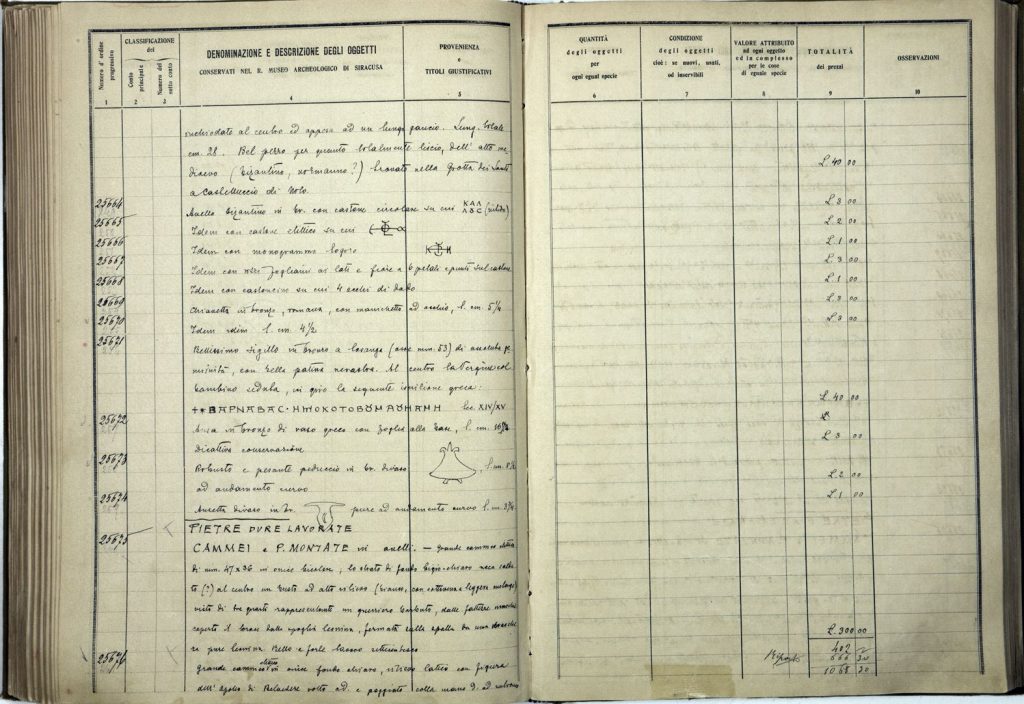 Numero d'ordine progressivo
CLASSIFICAZIONE dei
Conto principale
Numero del sotto conto
DENOMINAZIONE E DESCRIZIONE DEGLI OGGETTI
CONSERVATI NEL R. MUSEO ARCHEOLOGICO DI SIRACUSA
PROVENIENZA
e
TITOLI GIUSTIFICATIVI
1 2 3 4 5
al centro ed appeso ad un lungo gancio. Lung. totale
cm. 28. Bel pezzo per quanto totalmente liscio, dell'alto me-
dioevo (bizantino, normanno?) trovato nella Grotta dei Santi
a Castelluccio di Noto.
25664 Anello bizantino in br. con castone circolare su cui ΚΑΛ ΛΒС
25665 Idem con castone ellittico su cui
25666 Idem con monogramma logoro
25667 Idem con fogliami ai lati e fiore a 6 petali e punti sul castone
25668 Idem con castoncino su cui 4 occhi di dado
25669 in bronzo, romana, con manichetto ad occhio, l. cm. 5½
25670 Idem idem l. cm. 4½
25671 Bellissimo sigillo in bronzo a losanga (asse mm. 53) di assoluta ge-
nuinità, con bella patina nerastra. Al centro la Vergine col
bambino seduta, in giro la seguente iscrizione greca:
ΒΑΡΝΑΒΑС Sec. XIV/XV
25672 Ansa in bronzo di vaso greco con foglia alla base, l. mm.
conservazione
25673 Robusto e pesante peduccio in br. di vaso
ad andamento curvo
25674 Ansetta di vaso in br. pure ad andamento curvo l. m.
PIETRE DURE LAVORATE
25675 CAMMEI e P. MONTATE in anelli. — Grande cammeo
di mm. 47 x 36 in onice, lo strato di fondo bigio-chiaro
(?) al centro un busto ad alto rilievo (bianco, con
visto di tre quarti rappresentante un guerriero barbuto, dalle fattezze
coperto il torso dalla spoglia leonina, fermata sulla spalla da una
re pure leonina. Bello e forte lavoro
25676 Grande cammeo ellittico in onice fondo chiaro, rilievo latteo con figura
dell'Apollo di Belvedere volto ad. e poggiato colla mano d. ad
QUANTITÀ
degli oggetti
per
ogni egual specie
CONDIZIONE
degli oggetti
cioè: se nuovi, usati,
od inservibili
VALORE ATTRIBUITO
ad ogni oggetto
ed in complesso
per le cose
di eguale specie
TOTALITÀ
dei prezzi
OSSERVAZIONI
6 7 8 9 10
L. 40 00
L. 3 00
L. 2 00
L. 1 00
L. 3 00
L. 1 00
L. 3 00
L. 3 00
L. 40 00
L. 3 00
L. 2 00
L. 1 00
L. 300 00
402
Riporti 666 20
1068 20